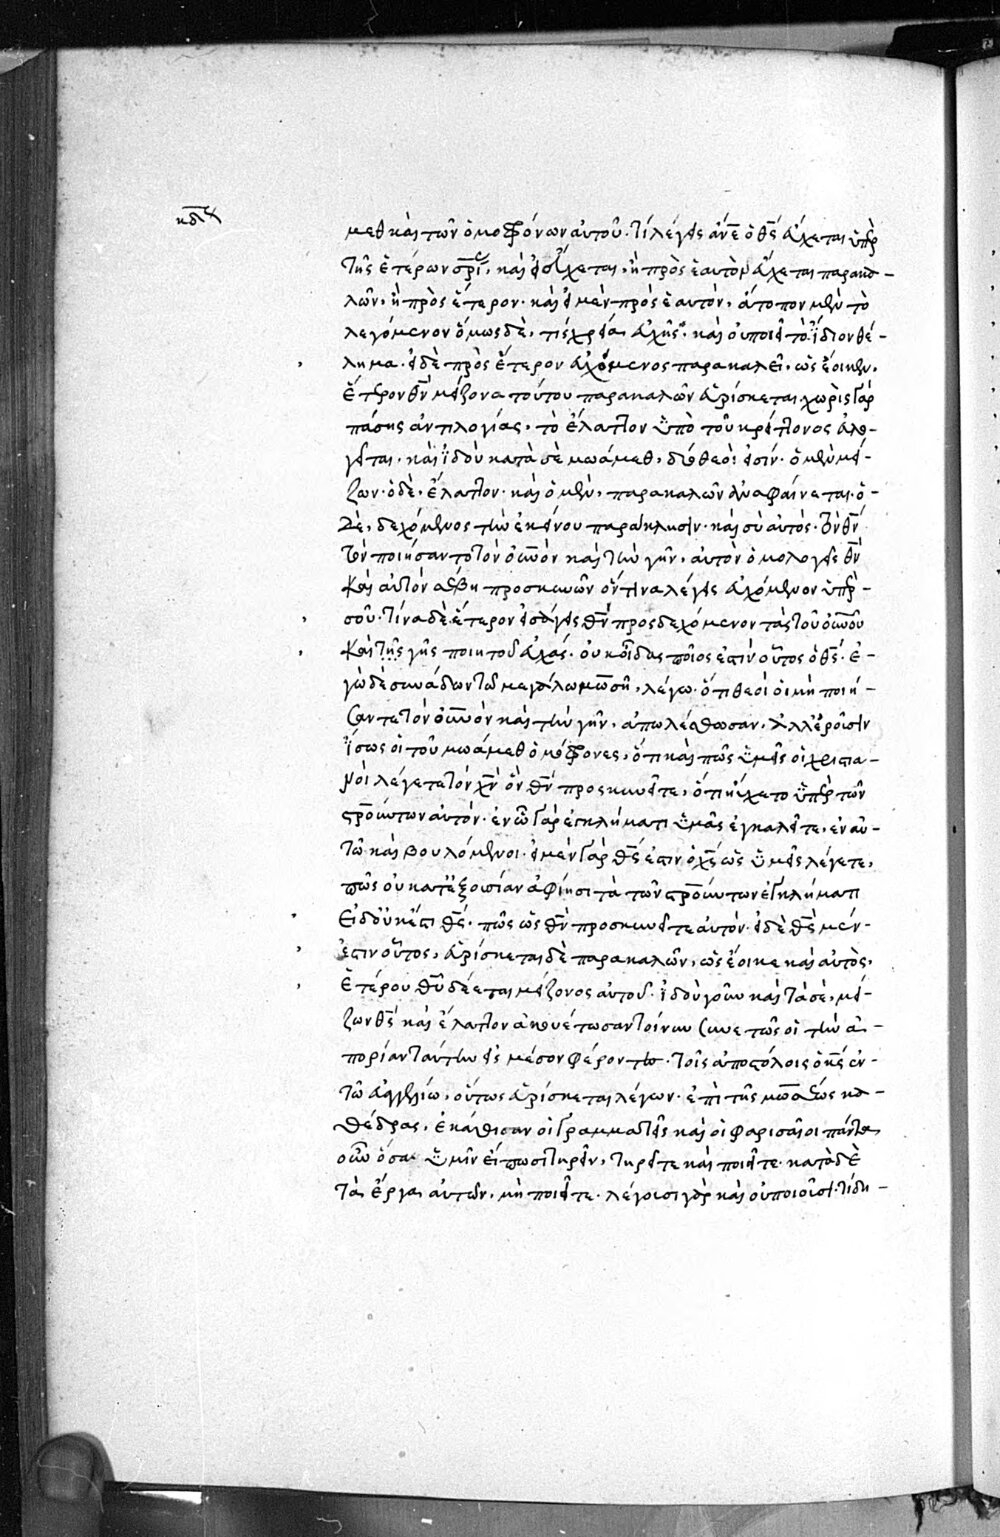 κδον
μεθ καὶ τῶν ὁμοφρόνων αὐτοῦ. τί λέγεις ἄνε ὁ θς εὔχεται ὑπὲρ
τῆς ἑτέρων σρίας, καὶ εἰ εὔχεται, ἢ πρὸς ἑαυτὸν εὔχεται παρακα-
λῶν, ἢ πρὸς ἕτερον. καὶ εἰ μὲν πρὸς ἑαυτόν, ἄτοπον μὲν τὸ
λεγόμενον ὅμως δὲ, τίς χρεία εὐχῆς. καὶ οὐ ποιεῖ τὸ ἴδιον θέ-
λημα. εἰ δὲ πρὸς ἕτερον εὐχόμενος παρακαλεῖ, ὡς ἔοικεν,
ἕτερον θν μείζονα τούτου παρακαλῶν εὑρίσκεται. χωρὶς γὰρ
πάσης ἀντιλογίας, τὸ ἔλαττον ὑπὸ τοῦ κρείττονος εὐλο-
γεῖται. καὶ ἰδοὺ κατὰ σὲ μωάμεθ, δύο θεοί εἰσίν. ὁ μὲν μεί-
ζων. ὁ δὲ, ἐλαττον. καὶ ὁ μὲν, παρακαλῶν ἀναφαίνεται. ὁ-
δὲ, δεχόμενος τὴν ἐκείνου παράκλησιν. καὶ σὺ αὐτὸς τὸν θν
τὸν ποιήσαντα τὸν οὐνὸν καὶ τὴν γῆν, αὐτὸν ὁμολογεῖς θν
καὶ αὐτὸν ἀσέβη προσκυνῶν ὅντινα λέγεις εὐχόμενον ὑπὲρ-
σοῦ. τίνα δὲ ἕτερον εἰσάγεις θν προσδεχόμενον τὰς τοῦ οὐνοῦ
καὶ τῆς γῆς ποιητοῦ εὐχάς. οὐκ οἶδας ποῖος ἐστὶν οὗτος ὁ θς. ἐ-
γὼ δὲ συνάδων τῶ μεγάλω μωσῆ, λέγω. ὅτι θεοὶ οἱ μὴ ποιή-
σαντε τὸν οὐνὸν καὶ τὴν γῆν, ἀπωλέσθωσαν. ἀλλ' ἐροῦσιν
ἴσως οἱ τοῦ μωάμεθ ὁμόφρονες, ὅτι καὶ πῶς ὑμεῖς οἱ χριστια-
νοὶ λέγετε τὸν χν ὃν θν προσκυνεῖτε, ὅτι ηὔχετο ὑπὲρ τῶν
στρούντων αὐτόν. ἐν ᾧ γὰρ ἐγκλήματι ἡμᾶς ἐγκαλεῖτε, ἐν αὐ-
τῶ καὶ βουλόμενοι. εἰ μὲν γὰρ θς ἐστιν ὁ χς ὡς ὑμεῖς λέγετε,
πῶς οὐ κατ' ἐξουσίαν ἀφίησι τὰ τῶν στρούντων ἐγκλήματι
εἰ δ' οὐκ ἔστι θς. πῶς ὡς θν προσκυνεῖτε αὐτόν. εἰ δὲ θς μέν-
ἐστιν οὗτος, εὑρίσκεται δὲ παρακαλῶν, ὡς ἔοικε καὶ αὐτὸς,
ἑτέρου θῦ δέεται μείζονος αὐτοῦ. ἰδοὺ γοῦν καὶ τὰ σὲ, μεί-
ζων θς καὶ ἔλαττον ἀκουέτωσαν τοίνυν συνετῶς οἱ τὴν ἀ-
πορίαν ταύτην εἰς μέσον φέροντες. τοῖς ἀποστόλοις ὁ κς ἐν-
τῶ εὐαγγελίω, οὕτως εὑρίσκεται λέγων. ἐπὶ τῆς μωσέως κα-
θέδρας, ἐκάθισαν οἱ γραμματεῖς καὶ οἱ φαρισαῖοι πάντα
οὖν ὅσα ὑμῖν εἴπωσι τηρεῖν, τηρεῖτε καὶ ποιεῖτε. κατὰ δὲ
τὰ ἔργα αὐτῶν, μὴ ποιεῖτε. λέγουσι γὰρ καὶ οὐ ποιοῦσι. τί δη-